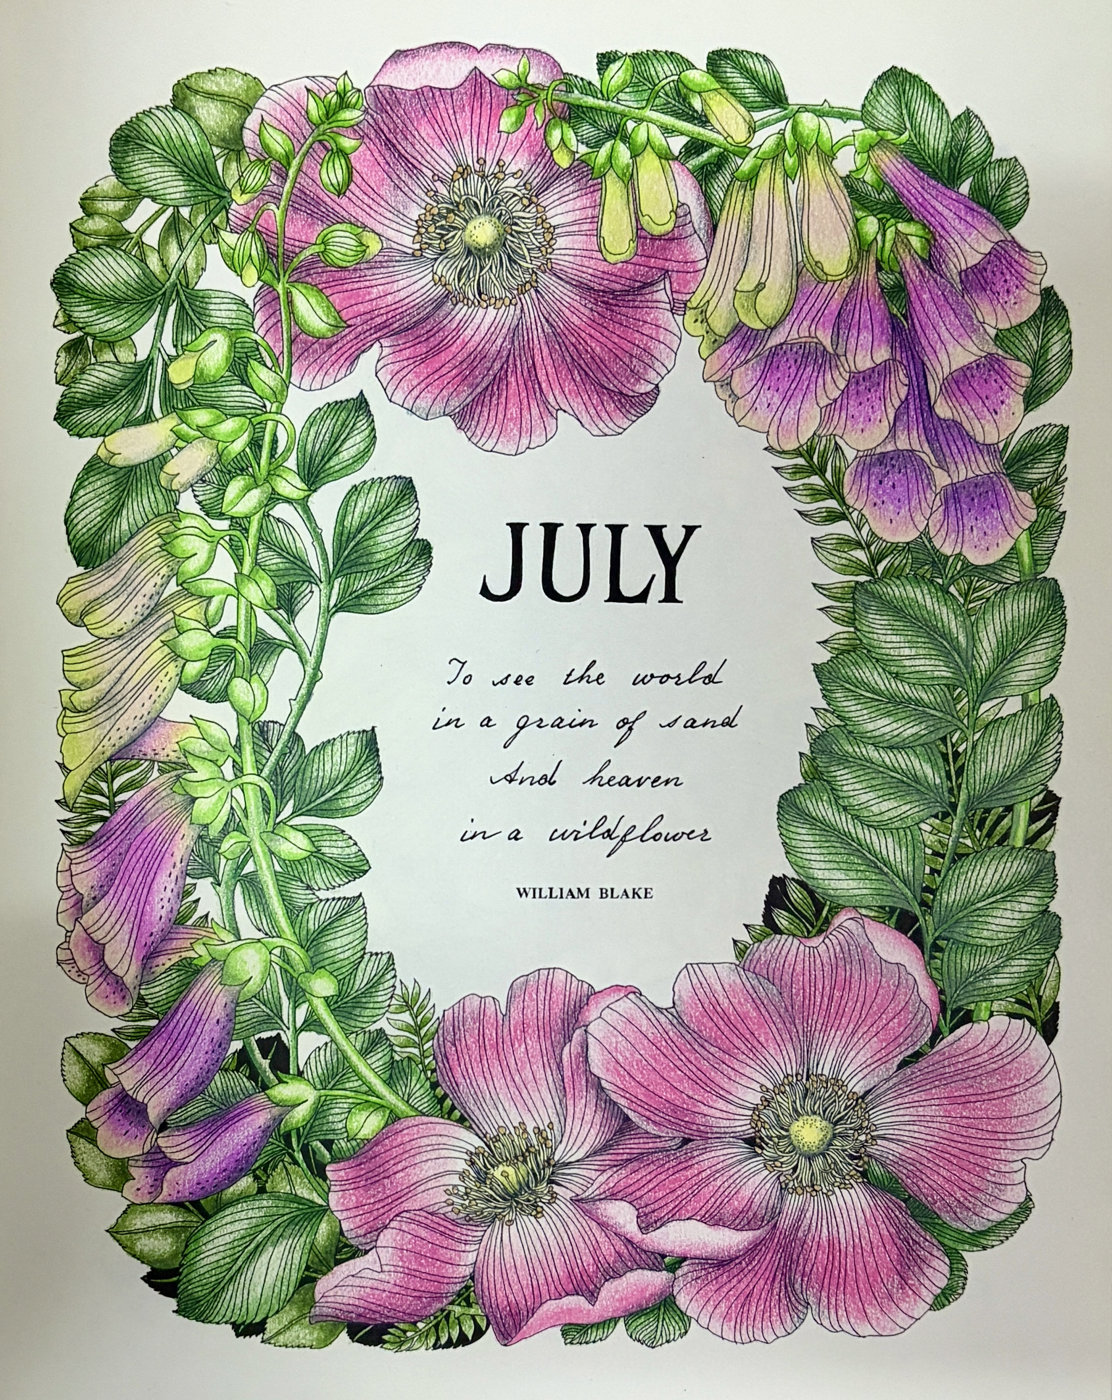 JULY
To see the world
in a grain of sand
And heaven
in a wildflower
WILLIAM BLAKE